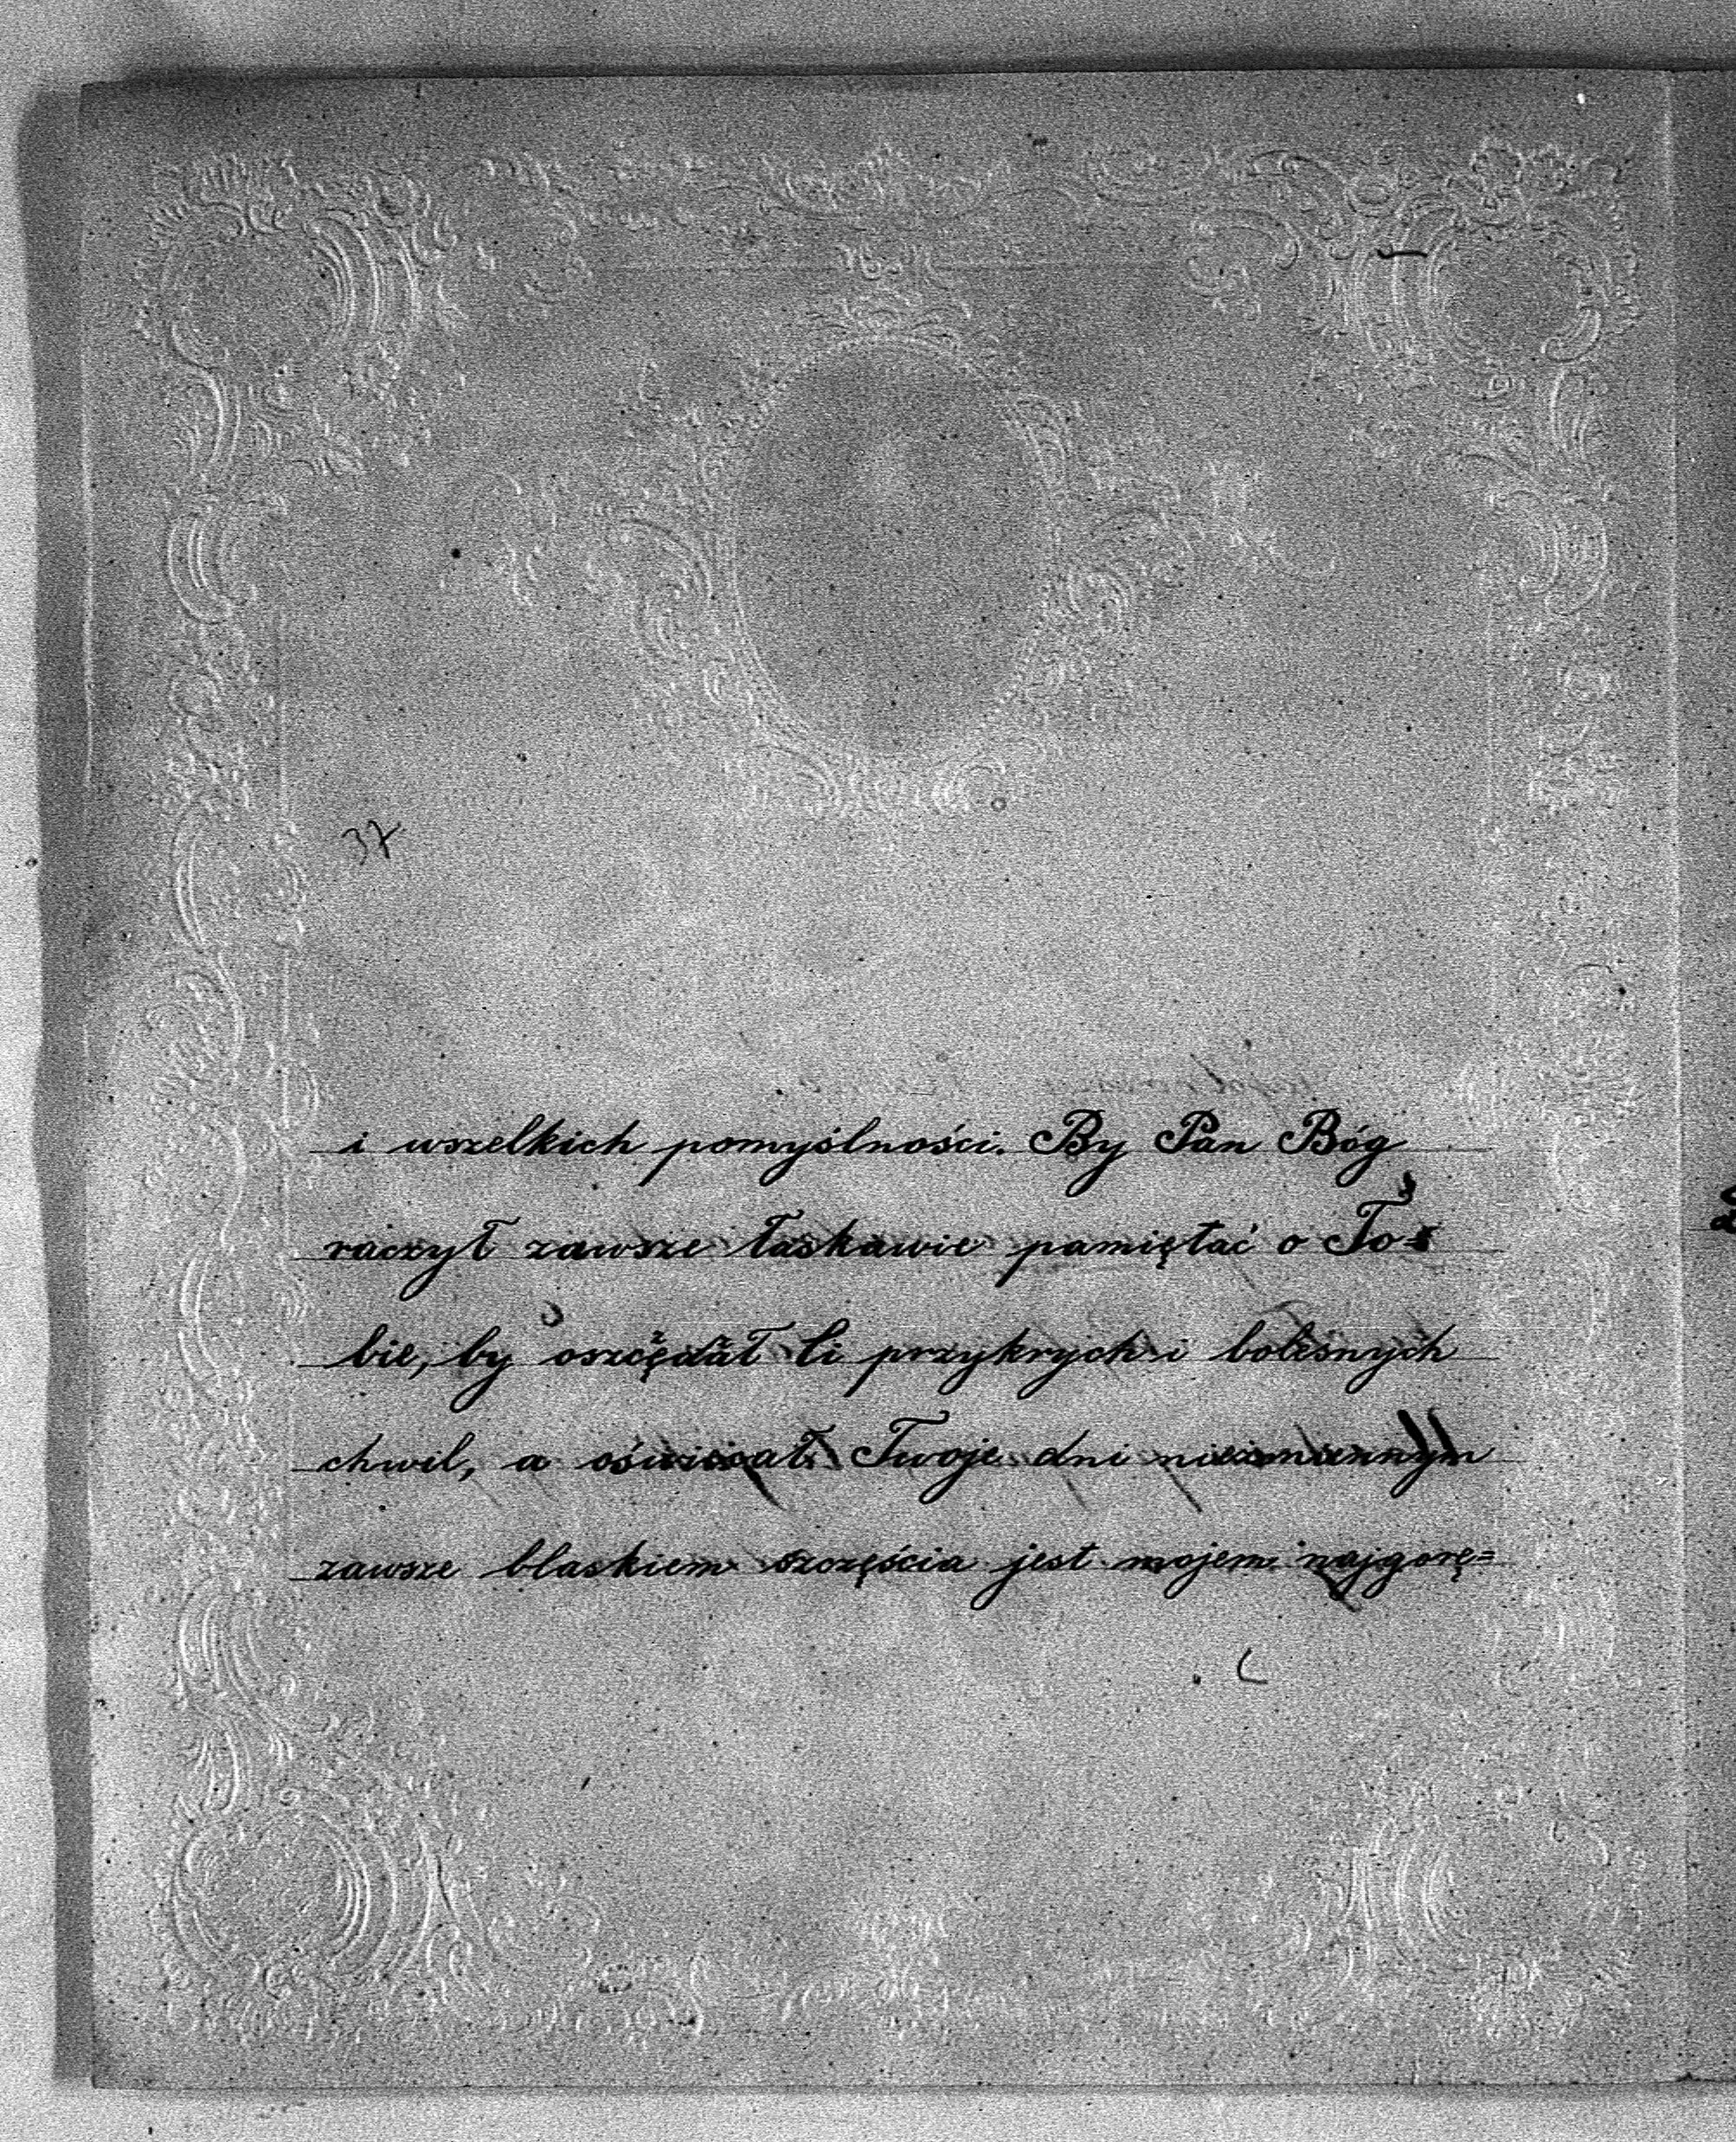 37
i wszelkich pomyślności. By Pan Bóg
raczył zawsze łaskawie pamiętać o To=
bie, by oszczędzał Ci przykrych i boleśnych
chwil, a oświecał Twoje dni niezmiennym
zawsze blaskiem szczęścia jest mojem najgorę=